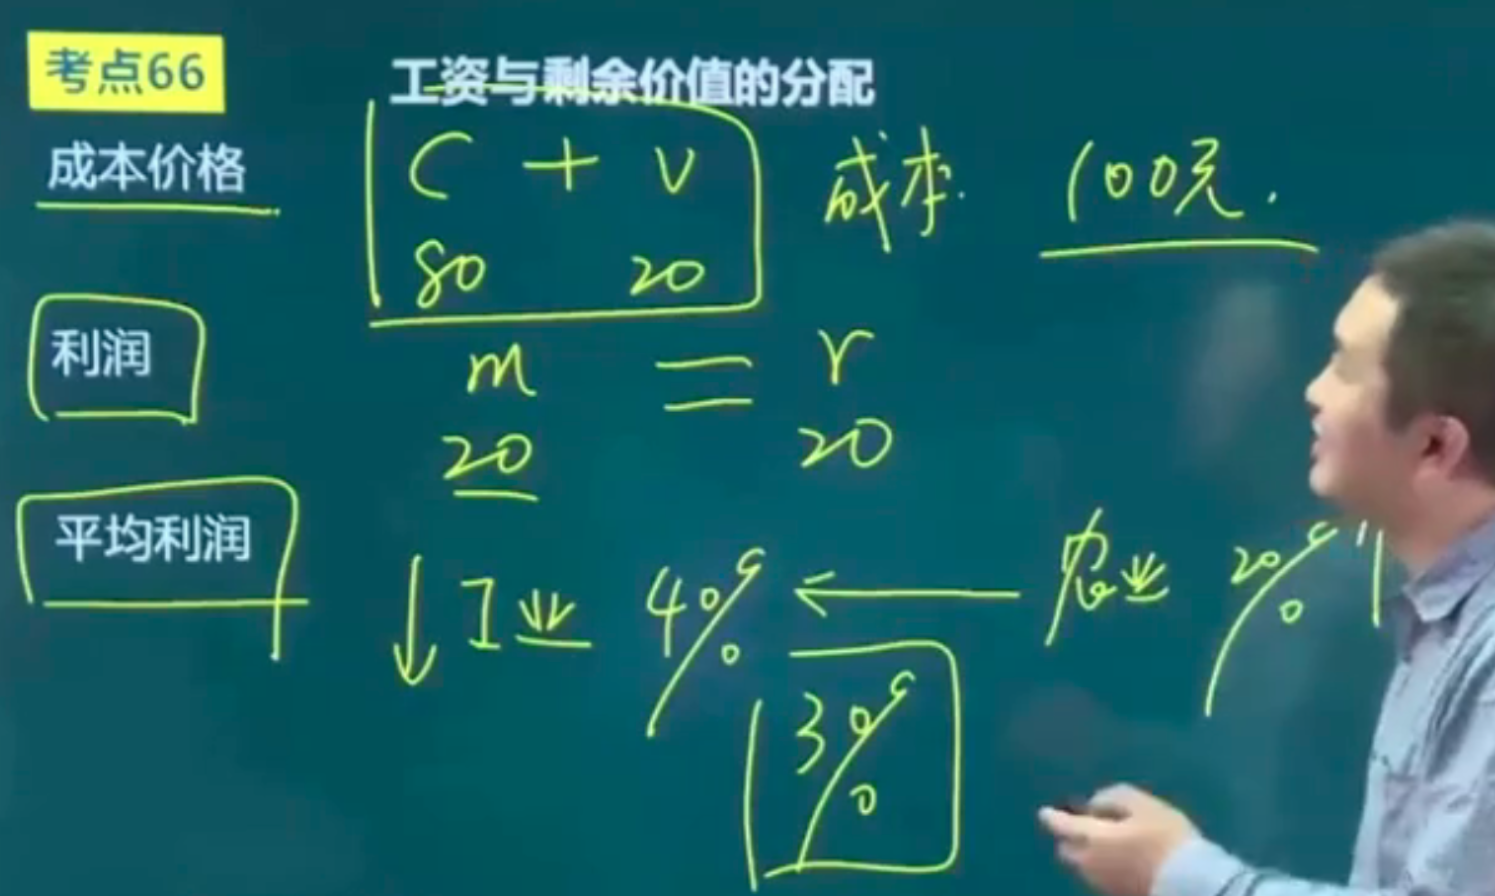 考点66
工资与剩余价值的分配
成本价格
C + V 成本 100元.
80 20
利润
m = r
20 20
平均利润
↓ 工业 40% ← 农业 20%
30%